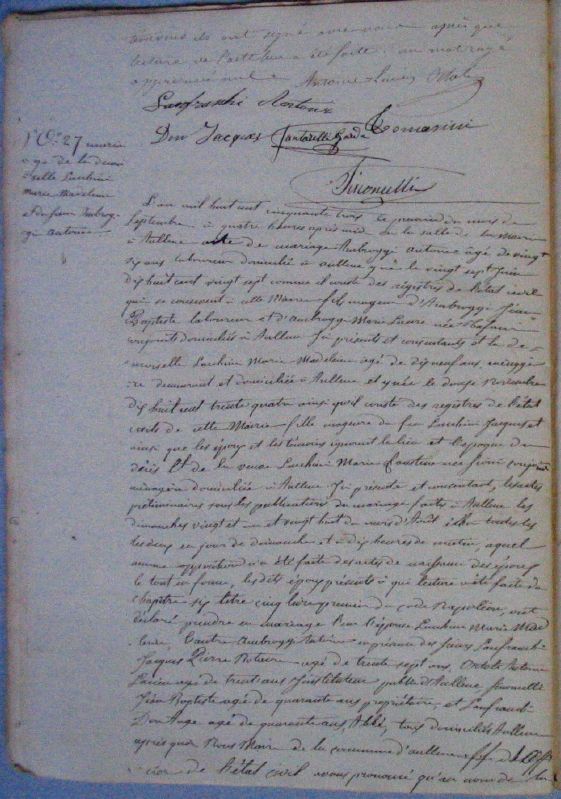 lecture de l'acte a été faite
approuvé nul
Antoine Lucien Ortoli
Lanfranchi Notaire
Don Jacques Lanfranchi Tomasini
Simonetti
N° 27 mariage de la demoiselle Lucchini
Marie Madeleine
et du sieur Ambroggi Antoine
L'an mil huit cent cinquante trois le premier du mois de
Septembre à quatre heures après midi en la salle de la Mairie
à Aullene acte de mariage Ambroggi Antoine âgé de vingt
six ans laboureur domicilié à Aullene y né le vingt sept Juin
dix huit cent vingt sept comme il conste des registres de l'état civil
qui se conservent à cette Mairie fils majeur d'Ambroggi Jean
Baptiste laboureur et d'Ambroggi Marie Laure née
conjoints domiciliés à Aullene Ici présents et consentants et la de
morselle Lucchini Marie Madeleine agé de dix neuf ans ménagè
re demeurant et domiciliée à Aullene et y née le douze Novembre
dix huit cent trente quatre ainsi qu'il conste des registres de l'état
civils de cette Mairie fille majeure du feu Lucchini Jacques et
ainsi que les époux et les témoins ignorent le lieu et l'époque du
décès Et de la veuve Lucchini Marie Faustine née
ménagère domiciliée à Aullene Ici présente et consentant, les actes
préliminaires sont les publications de mariage faites à Aullene les
dimanches vingt et un et vingt huit du mois d'Août toutes les
les deux en jour de Dimanche et à dix heures du matin, aquel
aucune opposition a été faite des actes de naissance des époux
le tout en forme, les dits époux présents à qui lecture a été faite du
chapitre six titre cinq livre premier du code Napoléon, ont
déclaré prendre en mariage l'un l'épouse Lucchini Marie Mad
leine, l'autre Ambroggi Antoine en présence des sieurs Lanfranchi
Jacques Pierre Notaire agé de trente sept ans, Ortoli Antoine
Lucien agé de trente ans Instituteur public d'Aullene, Simonetti
Jean Baptiste agé de quarante ans propriétaire, et Lanfranchi
Don Ange agé de quarante ans, Abbé, tous domiciliés Aullene
après quoi Nous Maire de la commune d'Aullene ff. d'offi
cier de l'état civil avons prononcé qu'au nom de la loi